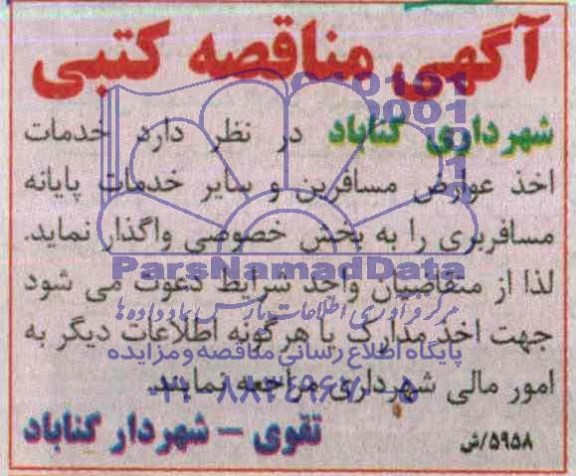 آگهی مناقصه کتبی
شهرداری گناباد در نظر دارد خدمات
اخذ عوارض مسافرین و سایر خدمات پایانه
مسافربری را به بخش خصوصی واگذار نماید.
ParsNamadData
لذا از متقاضیان واجد شرایط دعوت می شود
مرکز فرآوری اطلاعات پارس نماد داده ها
جهت اخذ مدارک یا هرگونه اطلاعات دیگر به
پایگاه اطلاع رسانی مناقصه و مزایده
امور مالی شهرداری مراجعه نمایند.
۰۲۱-۸۸۳۴۹۶۷۰-۵
تقوی - شهردار گناباد
۵۹۵۸/ش